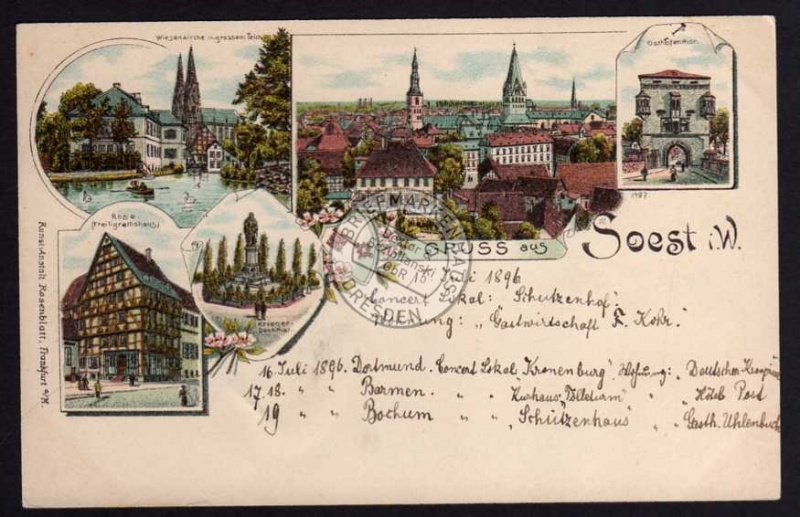 Wiesenkirche m. grossem Teich
Osthofenthor.
1987
Rose.
(Freiligrathshaus)
Krieger-
Denkmal
Kunst-Anstalt Rosenblatt, Frankfurt a/M.
GRUSS aus Soest i.W.
BRIEFMARKENHAUS
DRESDEN
GbR
Juli 1896
Concert Lokal: Schützenhof.
"Gastwirtschaft F. Kohr.
16 Juli 1896. Dortmund. Concert Lokal Kronenburg. Wohnung: "Deutscher
17. 18. " " Barmen. " " Kurhaus " " Hôtel Post
19 " " Bochum " " Schützenhaus " " Gasth. Uhlenbuch